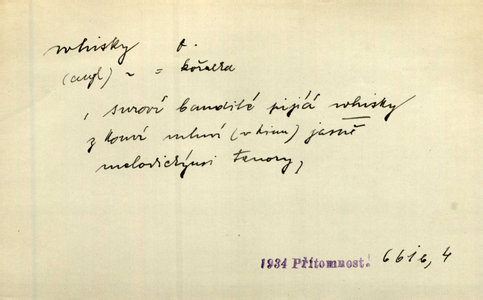 whisky
(angl) ~ = kořalka
, suroví bandité pijíá whisky
z konví mluví (v kinu) jasně
melodickými tenory,
1934 Přítomnost. 661b, 4